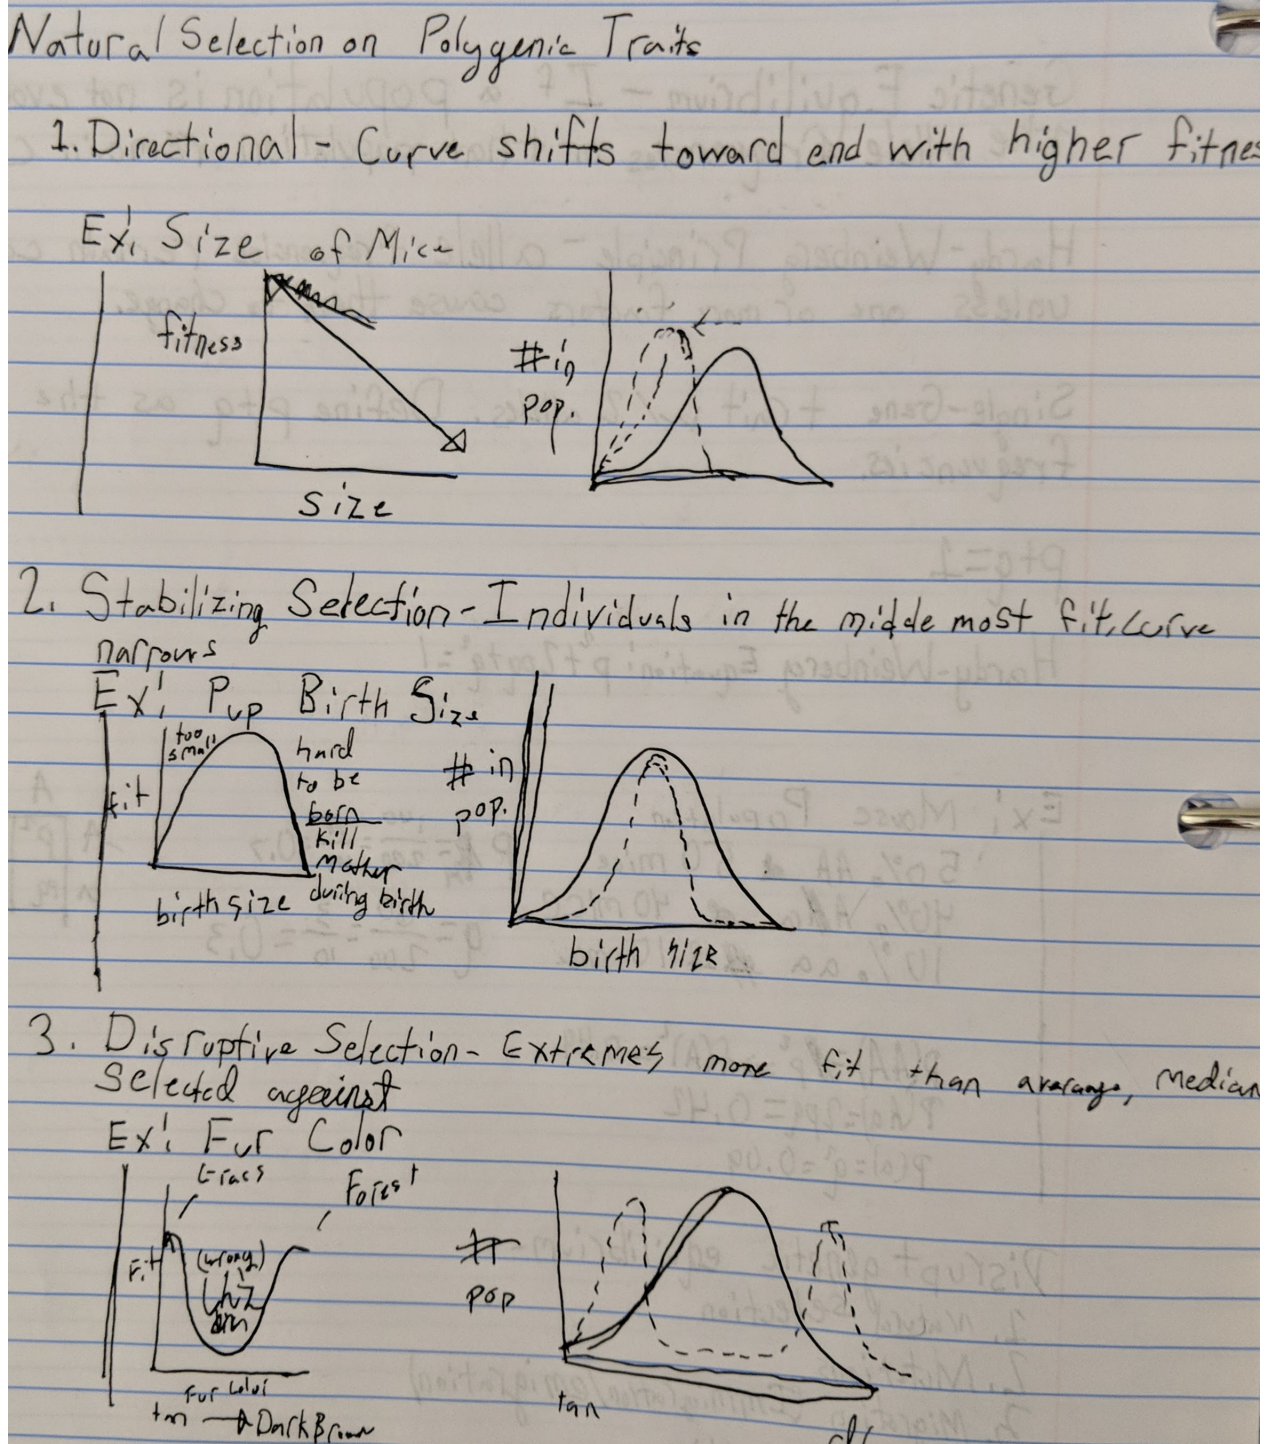 Natural Selection on Polygenic Traits
1. Directional - Curve shifts toward end with higher fitnes
Ex: Size of Mice
fitness
size
# in
pop.
2. Stabilizing Selection - Individuals in the middle most fit, curve
narrows
Ex: Pup Birth Size
too
small
hard
to be
born
kill
mother
during birth
fit
birth size
# in
pop.
birth size
3. Disruptive Selection - Extremes more fit than avarage, median
selected against
Ex: Fur Color
Forest
Fit
(wrong)
Fur Color
tan → Dark Brown
#
pop
tan